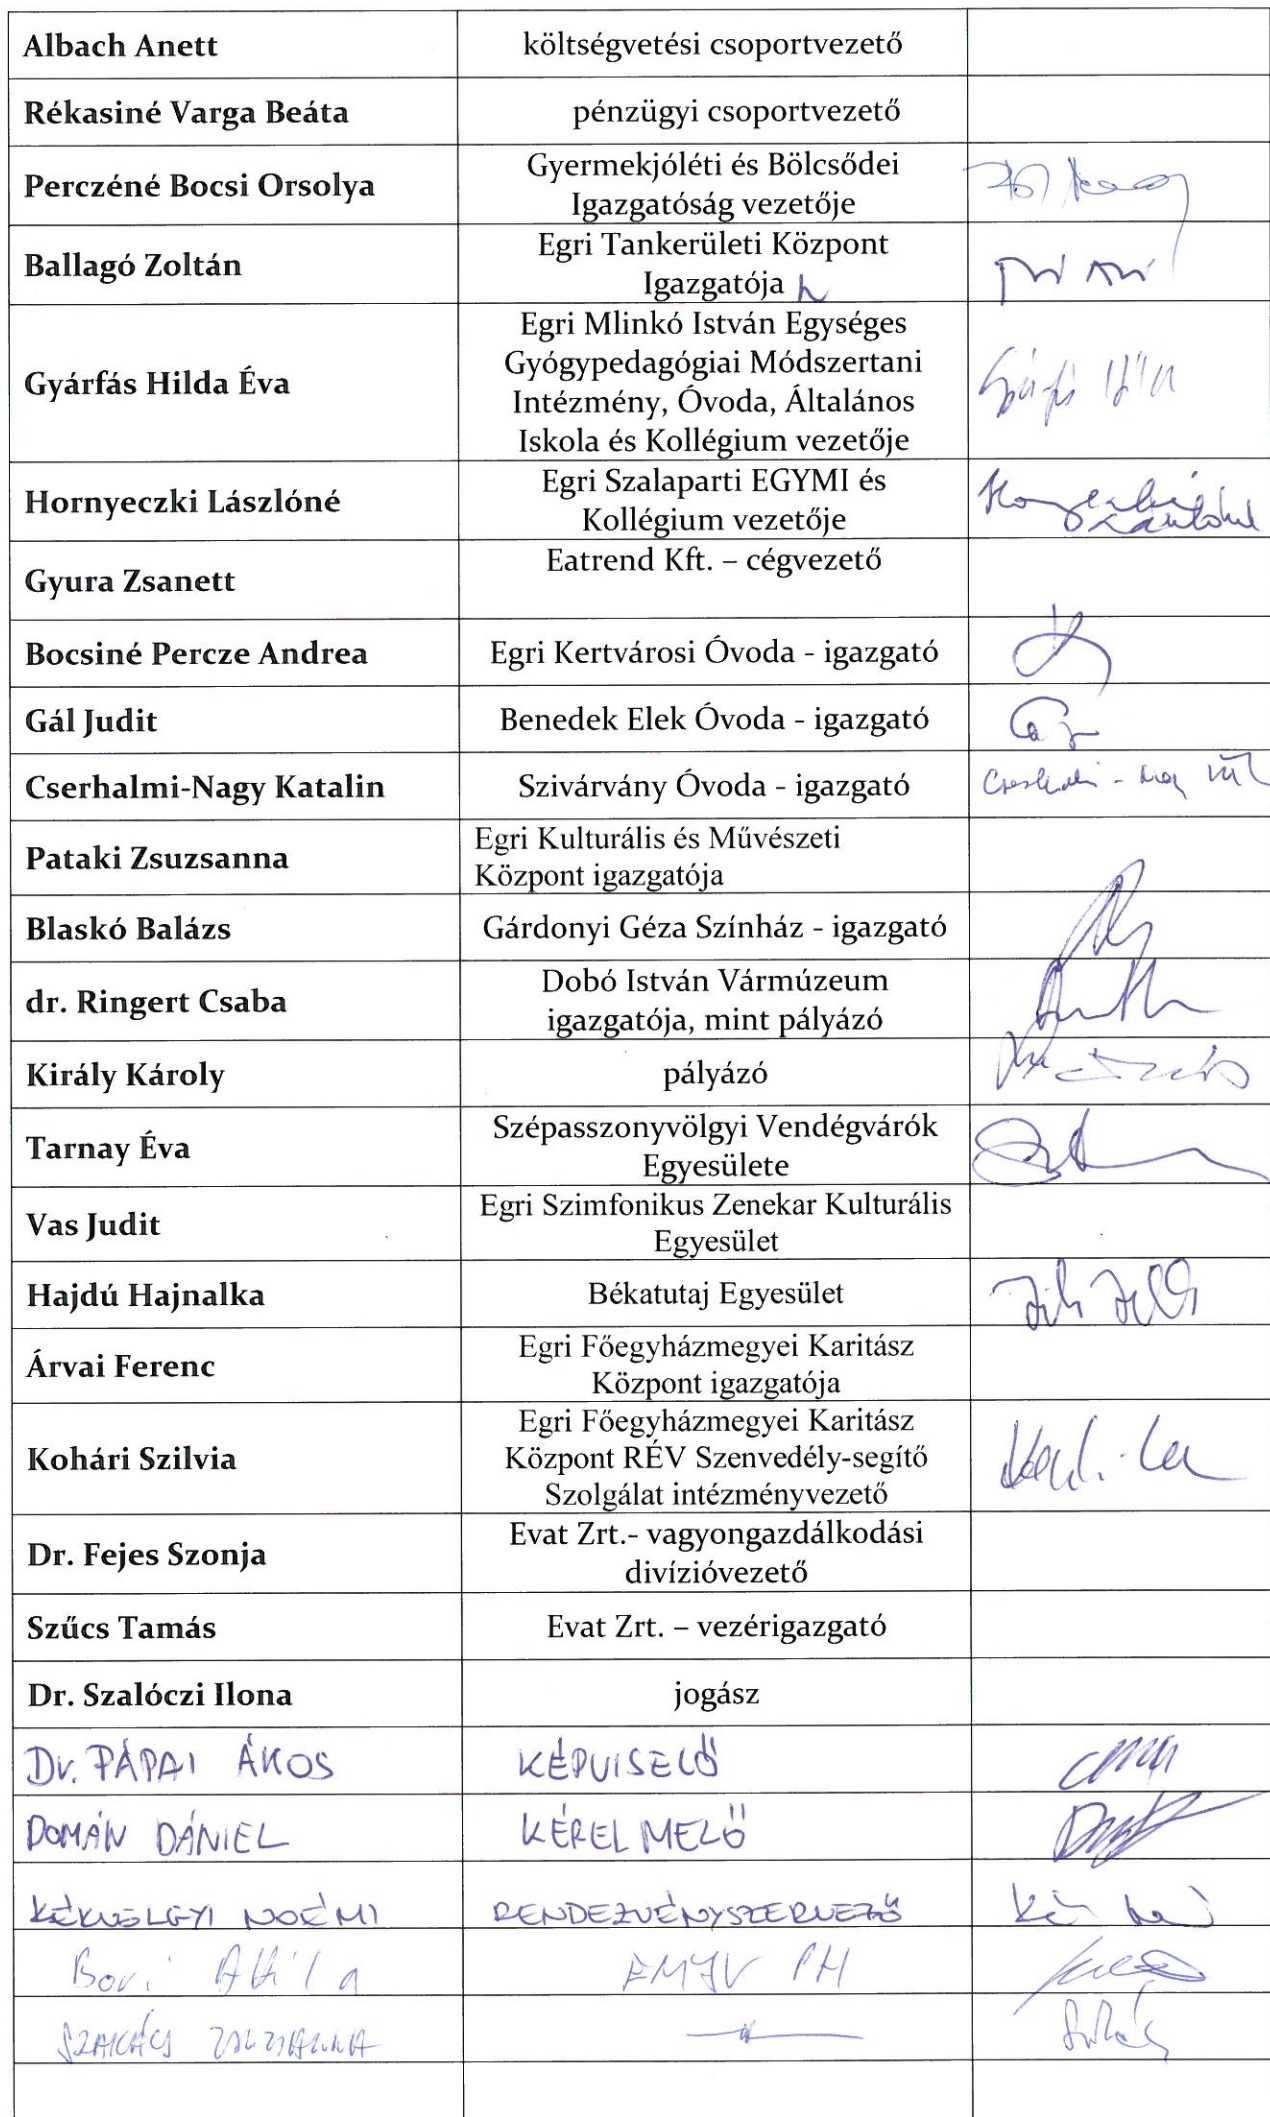 Albach Anett
költségvetési csoportvezető
Rékasiné Varga Beáta
pénzügyi csoportvezető
Perczéné Bocsi Orsolya
Gyermekjóléti és Bölcsődei
Igazgatóság vezetője
Ballagó Zoltán
Egri Tankerületi Központ
Igazgatója
Gyárfás Hilda Éva
Egri Mlinkó István Egységes
Gyógypedagógiai Módszertani
Intézmény, Óvoda, Általános
Iskola és Kollégium vezetője
Hornyeczki Lászlóné
Egri Szalaparti EGYMI és
Kollégium vezetője
Gyura Zsanett
Eatrend Kft. – cégvezető
Bocsiné Percze Andrea
Egri Kertvárosi Óvoda - igazgató
Gál Judit
Benedek Elek Óvoda - igazgató
Cserhalmi-Nagy Katalin
Szivárvány Óvoda - igazgató
Pataki Zsuzsanna
Egri Kulturális és Művészeti
Központ igazgatója
Blaskó Balázs
Gárdonyi Géza Színház - igazgató
dr. Ringert Csaba
Dobó István Vármúzeum
igazgatója, mint pályázó
Király Károly
pályázó
Tarnay Éva
Szépasszonyvölgyi Vendégvárók
Egyesülete
Vas Judit
Egri Szimfonikus Zenekar Kulturális
Egyesület
Hajdú Hajnalka
Békatutaj Egyesület
Árvai Ferenc
Egri Főegyházmegyei Karitász
Központ igazgatója
Kohári Szilvia
Egri Főegyházmegyei Karitász
Központ RÉV Szenvedély-segítő
Szolgálat intézményvezető
Dr. Fejes Szonja
Evat Zrt.- vagyongazdálkodási
divízióvezető
Szűcs Tamás
Evat Zrt. – vezérigazgató
Dr. Szalóczi Ilona
jogász
Dr. PÁPAI ÁKOS
KÉPVISELŐ
DOMÁN DÁNIEL
KÉRELMEZŐ
KÉKVÖLGYI NOÉMI
RENDEZVÉNYSZERVEZŐ
Attila
EMJV PH
SZAKÁCS ZSUZSANNA